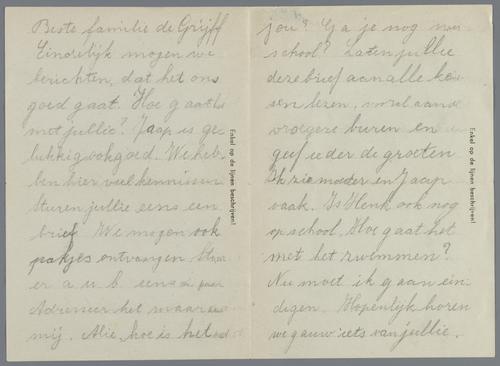 Beste familie de Grijff
Eindelijk mogen we
berichten, dat het ons
goed gaat. Hoe gaat het
met jullie? Jaap is ge
lukkig ook goed. We heb-
ben hier veel kennissen
Sturen jullie eens een
brief. We mogen ook
pakjes ontvangen Stuur
er a.u.b. eens
Adresseer het maar aan
mij. Alie, hoe is het
Enkel op de lijnen beschrijven!
jou? Ga je nog naar
school? Laten jullie
deze brief aan alle
lezen, vooral aan de
vroegere buren en
geef ieder de groeten
Ik zie moeder en Jaap
vaak. Is Henk ook nog
op school. Hoe gaat het
met het zwemmen?
Nu moet ik gaan ein-
digen. Hopenlijk horen
we gauw iets van jullie.
Enkel op de lijnen beschrijven!